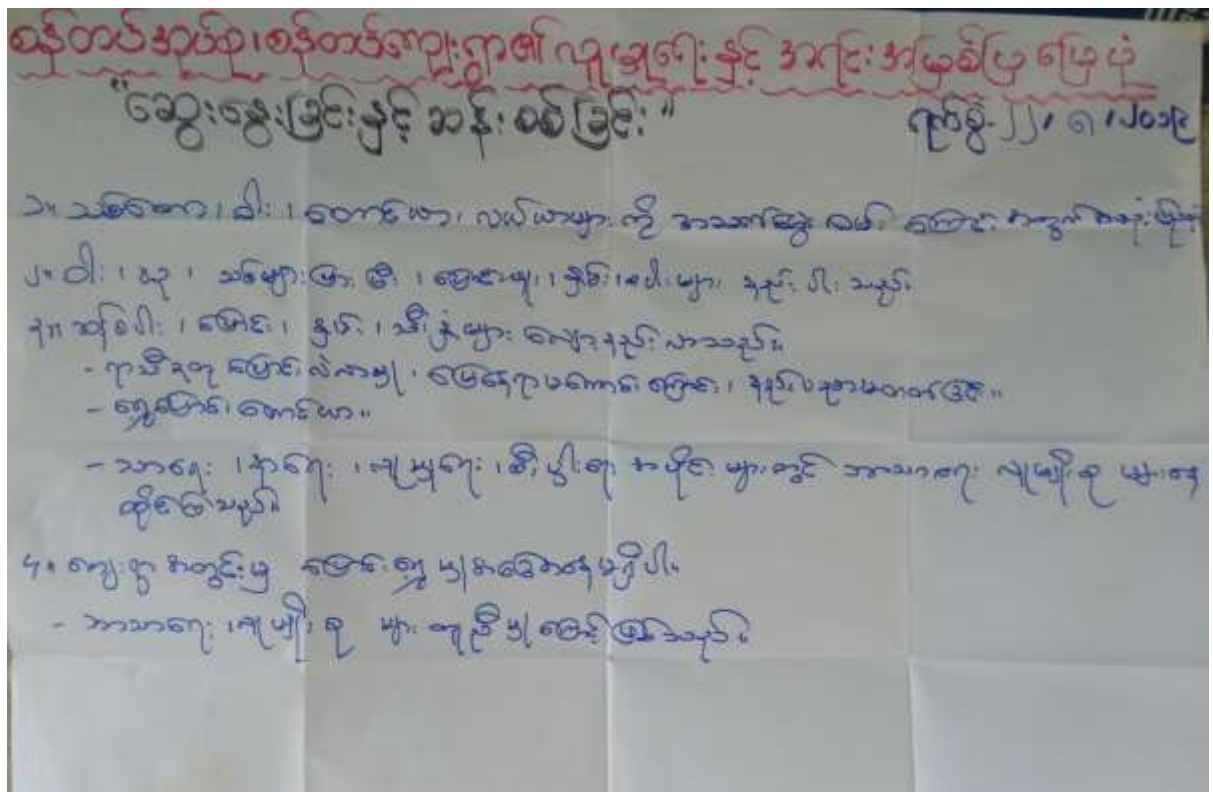 စန်တပ်အုပ်စု၊ စန်တပ်ကျေးရွာ၏ လူမှုရေးနှင့် အရင်းအမြစ်ပြ မြေပုံ
"ဆွေးနွေးခြင်းနှင့် ဆန်းစစ်ခြင်း" ရက်စွဲ-၂၂၊ ၈၊ ၂၀၁၉
၁။ သစ်တော၊ ဝါး၊ တောင်ယာ၊ လယ်ယာများ ကို အသက်မွေးဝမ်း ကြောင်း အတွက် အသုံးပြု
၂။ ဝါး၊ သစ်များ ၊ နှမ်း၊ စပါးများ နည်းပါးသည်။
၃။ ဆန်စပါး၊ ပြောင်း၊ နှမ်း၊ သီးနှံများ လျော့နည်းလာသည်။
- ရာသီဥတု ပြောင်းလဲလာမှု၊ မြေနေရာမကောင်းကြောင်း၊ နည်းပညာမတတ်ခြင်း။
- ရွှေ့ပြောင်းတောင်ယာ။
- သာရေး၊ နာရေး၊ လူမှုရေး၊ စီးပွါးရေး အပိုင်းများတွင် ဘာသာရေး လူမျိုးစု များနေ
ထိုင်ကြသည်။
၄။ ကျေးရွာအတွင်းမှ ပြောင်းရွှေ့မှုအခြေအနေမရှိပါ။
- ဘာသာရေး၊ လူမျိုးစု များ တူညီမှုကြောင့် ဖြစ်သည်။